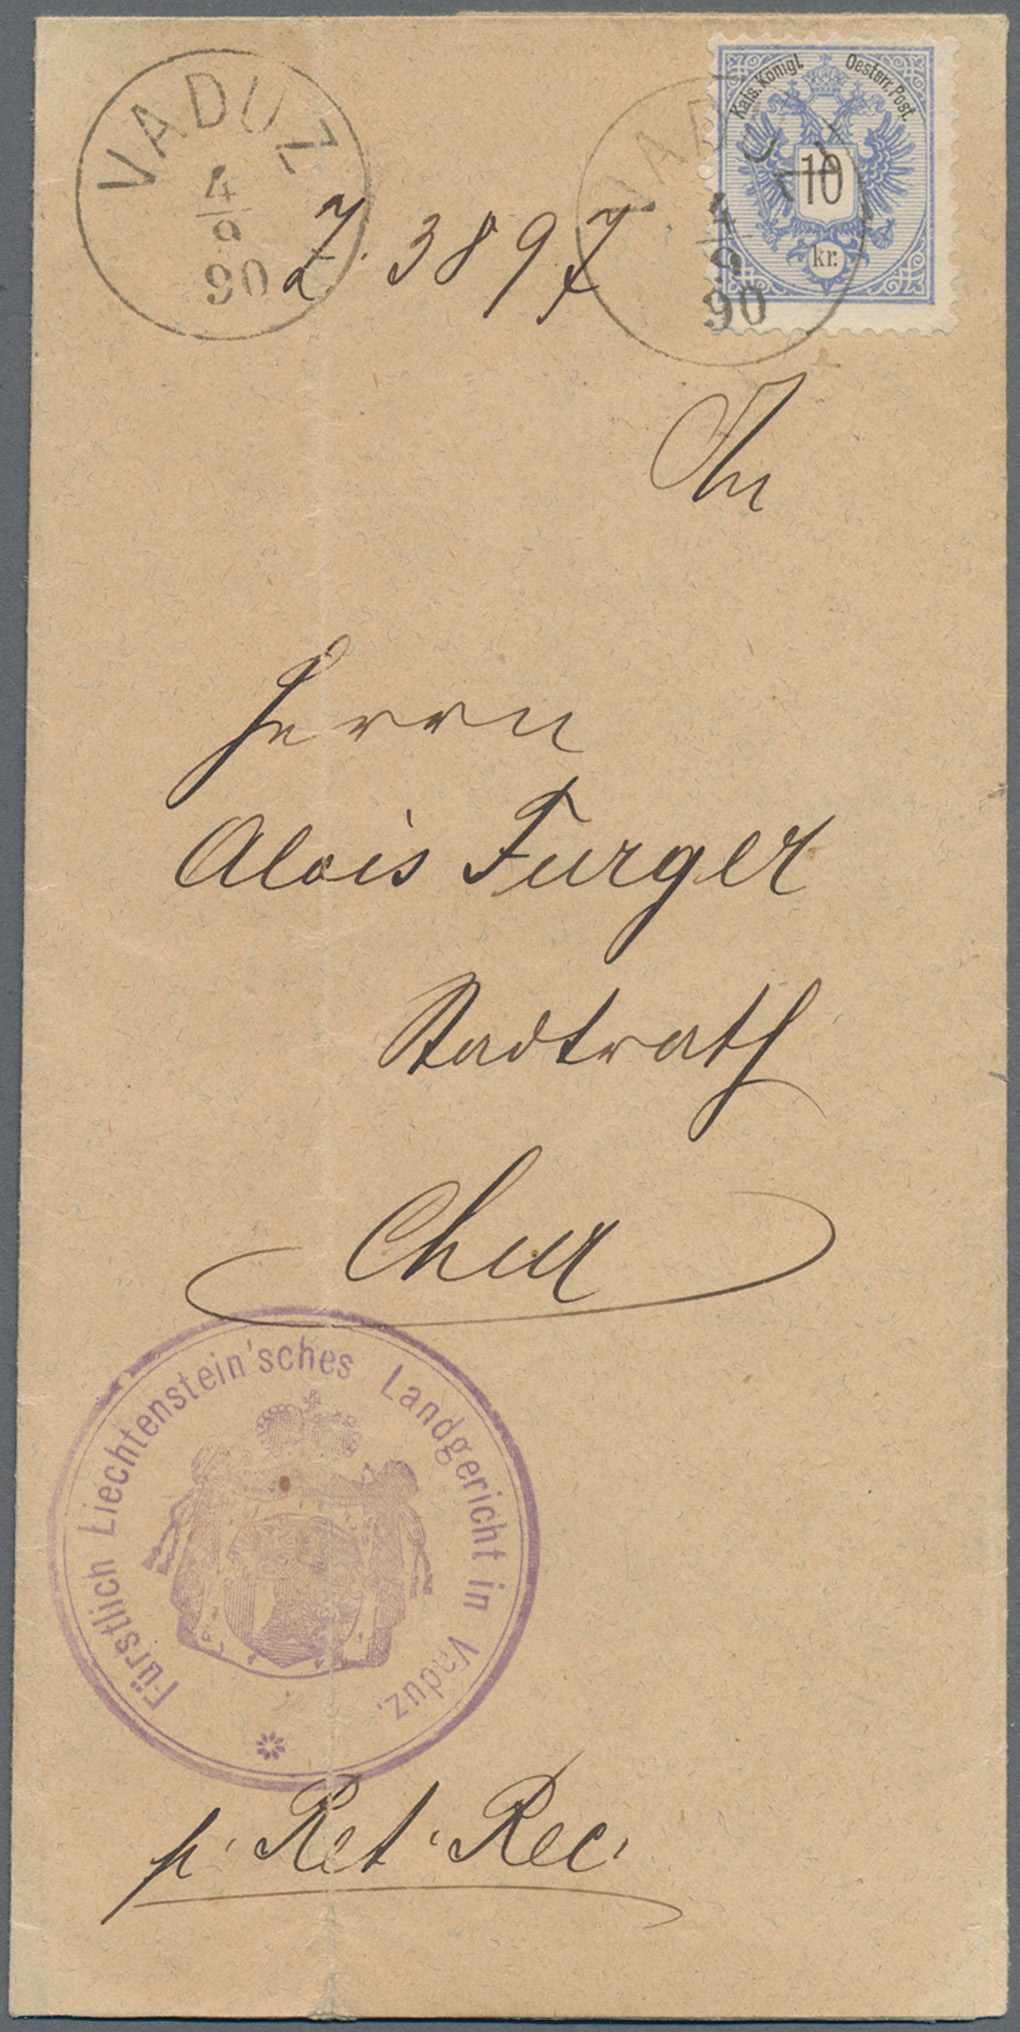 VADUZ
4/9
90
Z. 3897
VADUZ
4/9
90
Kais. Königl. Oesterr. Post.
10
kr.
An
Herrn
Alois Furger
Stadtrath
Chur
Fürstlich Liechtenstein'sches Landgericht in Vaduz.
p. Ret. Rec.